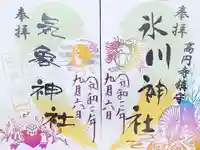 奉拝
高円寺鎮守
氷川神社
令和二年
九月六日
奉拝
氣象神社
令和二年
九月六日